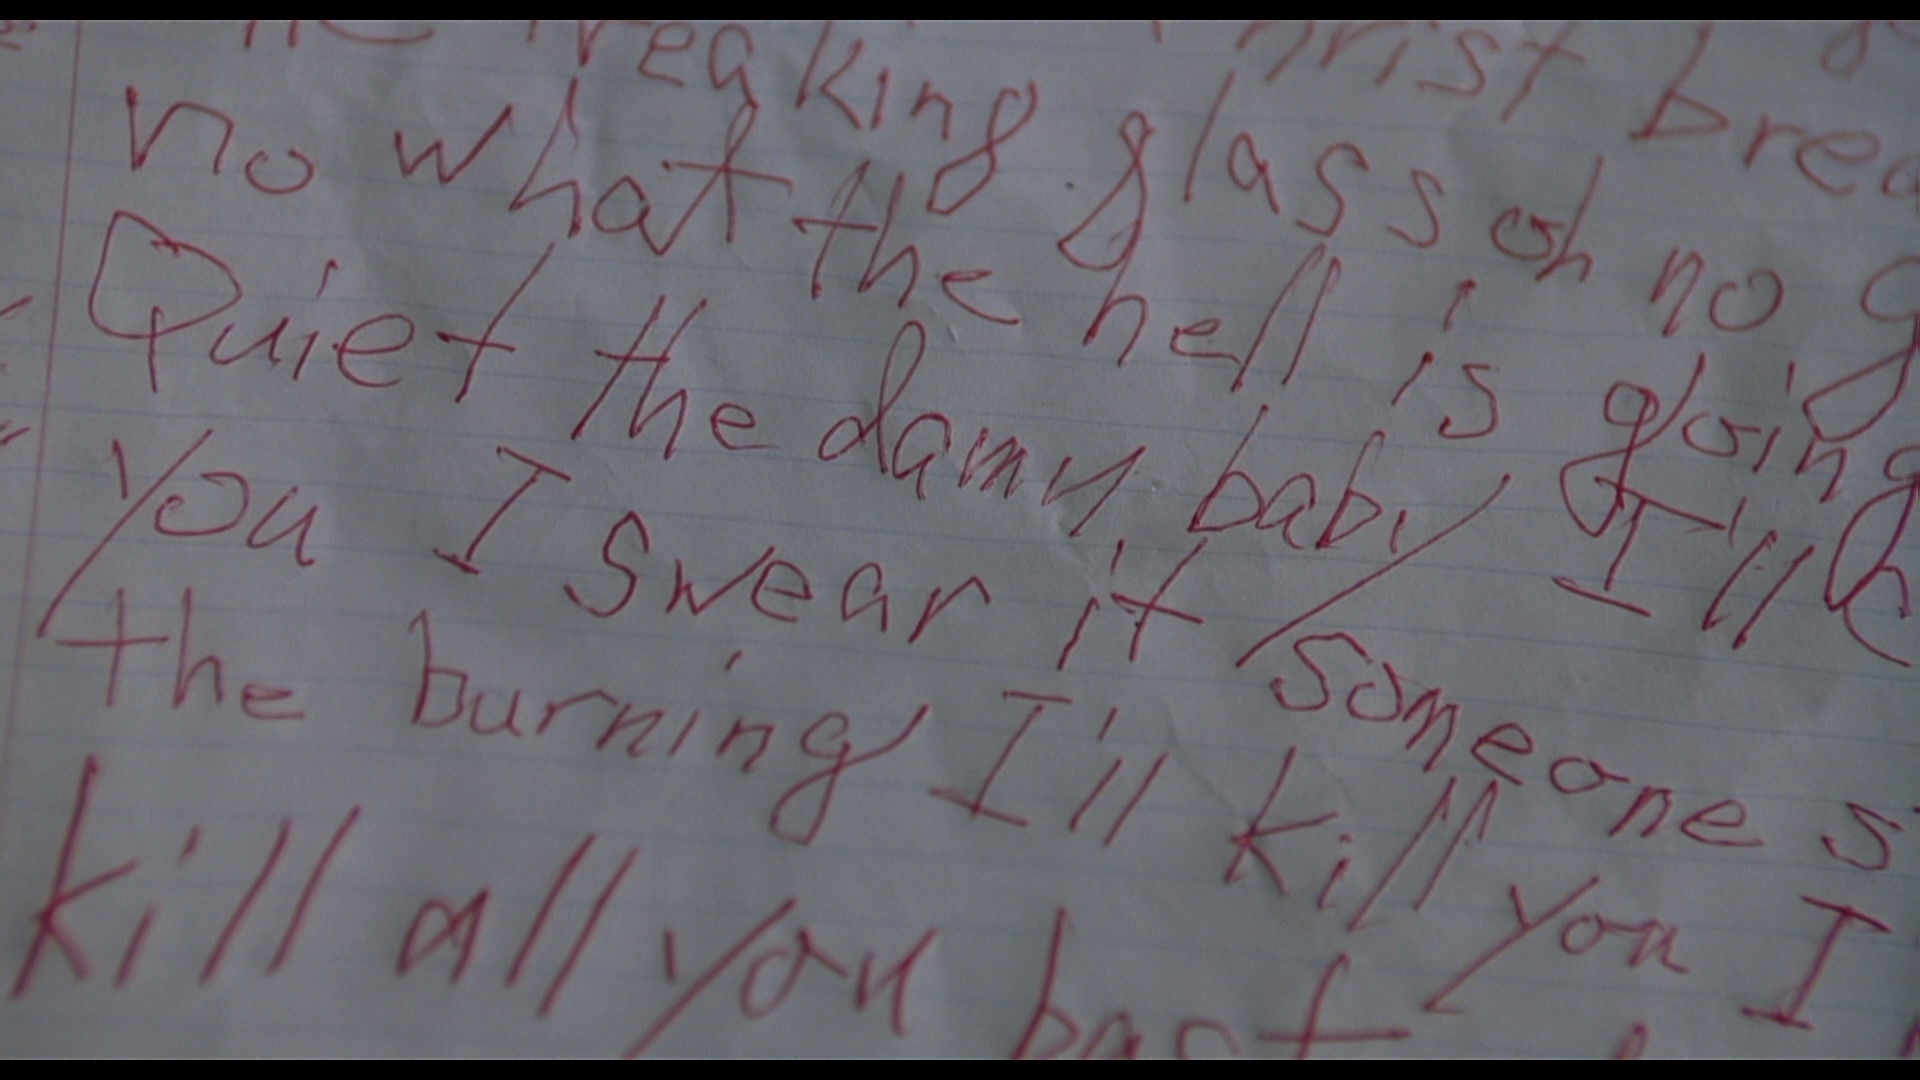 hrist brea
reaking glass oh no g
no what the hell is going
Quiet the damn baby I'll
you I swear it someone s
the burning I'll kill you I
kill all you bast